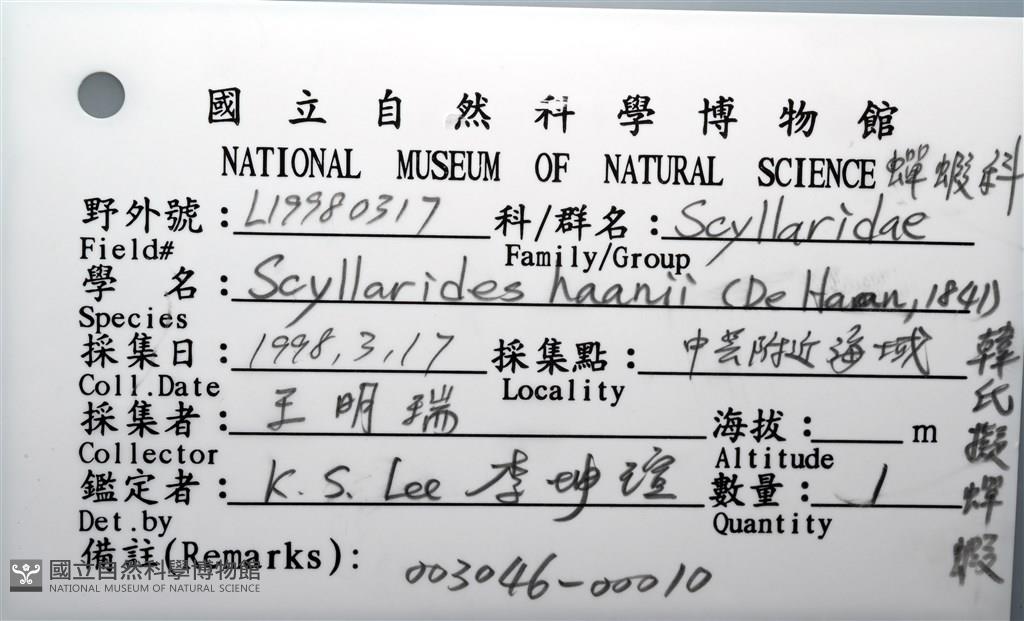 國立自然科學博物館
NATIONAL MUSEUM OF NATURAL SCIENCE 蟬蝦科
野外號：L19980317 科/群名：Scyllaridae
Field# Family/Group
學 名：Scyllarides haanii (De Haan, 1841)
Species
採集日：1998,3,17 採集點：中芸附近海域
Coll.Date Locality
韓氏擬蟬蝦
採集者：王明瑞 海拔：m
Collector Altitude
鑑定者：K.S. Lee 李坤瑄 數量：1
Det.by Quantity
備註(Remarks)： 003046-00010
國立自然科學博物館
NATIONAL MUSEUM OF NATURAL SCIENCE